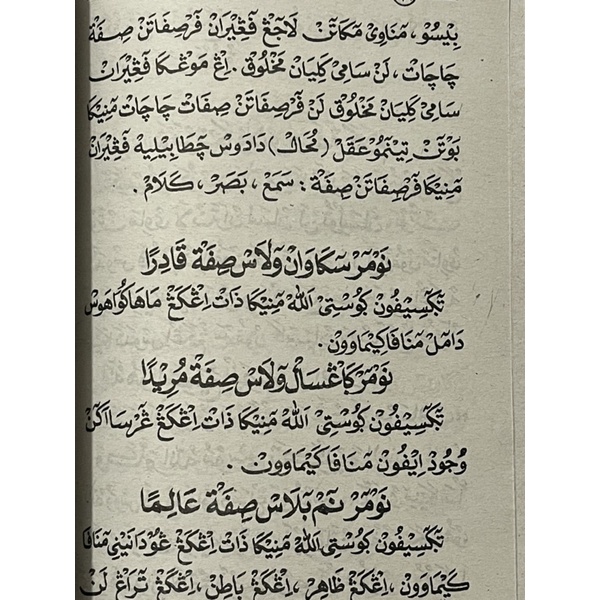 بيسو، مناوي مكاتن لاجڠ ڤڠيران ڤرصفاتن صفة
چاچات، لن سامي كليان مخلوق. اڠ موڠكا ڤڠيران
سامي كليان مخلوق لن ڤرصفاتن صفات چاچات منيكا
بوتن تينمو عقل (مُحَال) دادوس چطا بيليه ڤڠيران
منيكا ڤرصفاتن صفة : سمع، بصر، كلام.
نومر سكاوان ولاس صفة قادرا
تڬسيڤون ڬوستي الله منيكا ذات اڠكڠ ماها كواهوس
دامل منافا كيماوون.
نومر ڬاڠسال ولاس صفة مريدا
تڬسيڤون ڬوستي الله منيكا ذات اڠكڠ ڠرسااكن
وجود ايڤون منافا كيماوون.
نومر نم بلاس صفة عالما
تڬسيڤون ڬوستي الله منيكا ذات اڠكڠ ڠودانيني منافا
كيماوون، اڠكڠ ظاهر، اڠكڠ باطن، اڠكڠ تراڠ لن